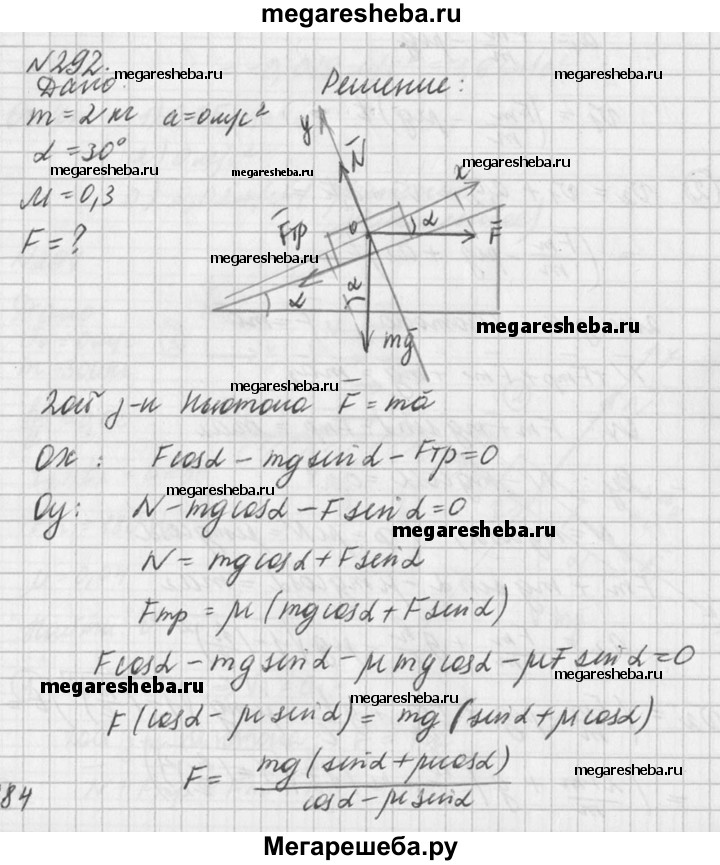 megaresheba.ru
N292.
megaresheba.ru
megaresheba.ru
Дано:
Решение:
m = 2 кг a = 0 м/с²
α = 30°
megaresheba.ru
megaresheba.ru
μ = 0,3
F = ?
y
N̄
x
F̄тр
0
α
F̄
megaresheba.ru
α
α
mḡ
megaresheba.ru
megaresheba.ru
2ой з-н Ньютона F̄ = mā
Ox: Fcosα − mgsinα − Fтр = 0
megaresheba.ru
Oy: N − mgcosα − Fsinα = 0
megaresheba.ru
N = mgcosα + Fsinα
Fтр = μ(mgcosα + Fsinα)
Fcosα − mgsinα − μmgcosα − μFsinα = 0
megaresheba.ru
megaresheba.ru
megaresheba.ru
F(cosα − μsinα) = mg(sinα + μcosα)
F = mg(sinα + μcosα) / cosα − μsinα
megaresheba.ru
84
megaresheba.ru
Мегарешеба.ру